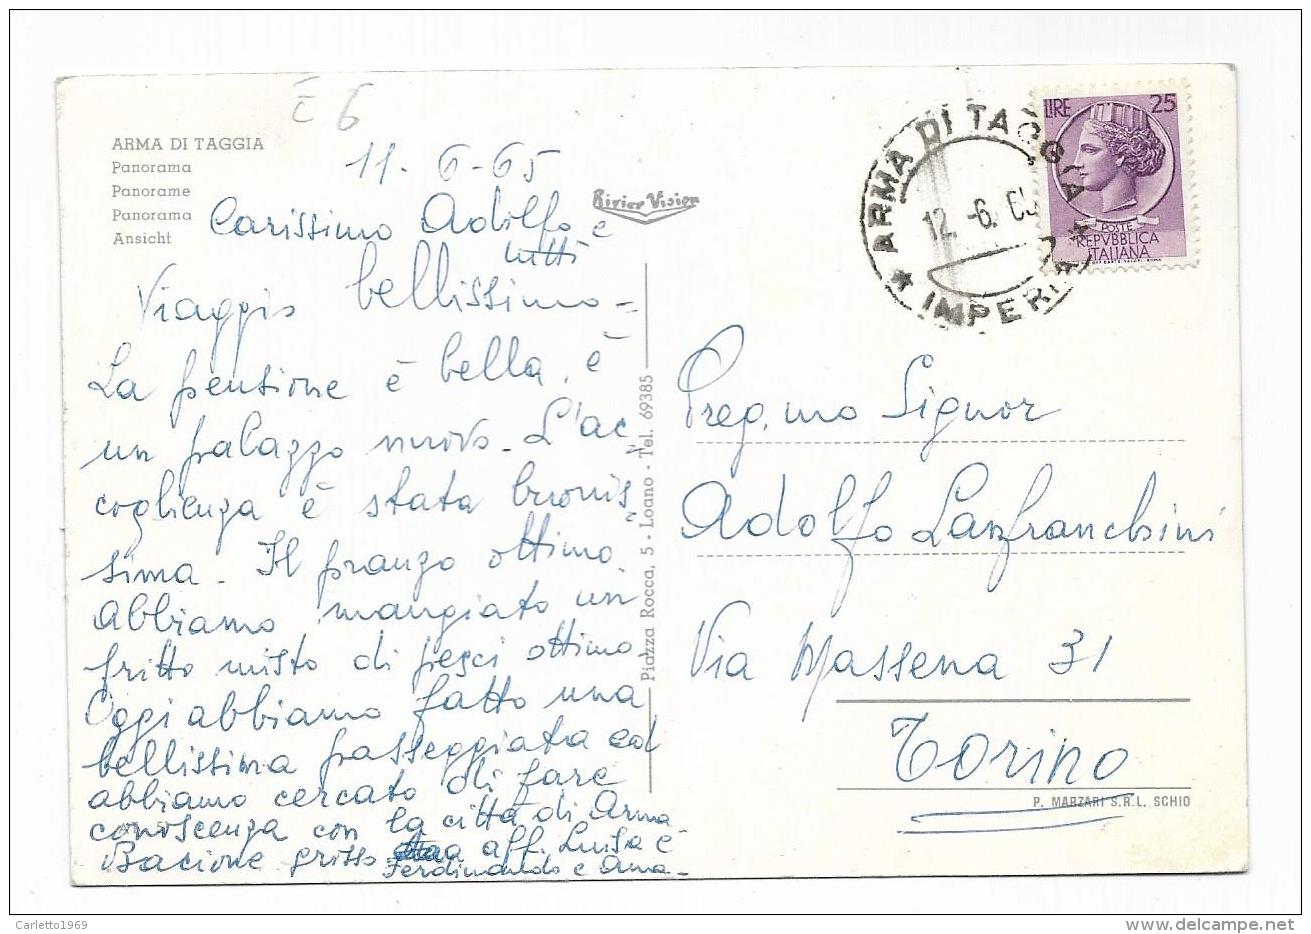 ARMA DI TAGGIA
Panorama
Panorame
Panorama
Ansicht
É 6
11-6-65
Carissimo Adolfo e
tutti
Viaggio bellissimo =
La pensione è bella, è
un palazzo nuovo - L'ac=
coglienza è stata buonis=
sima - Il pranzo ottimo.
Abbiamo mangiato un
fritto misto di pesci ottimo.
Oggi abbiamo fatto una
bellissima passeggiata ed
abbiamo cercato di fare
conoscenza con la città di Arma -
Bacione grosso aff. Luisa e
Ferdinando e Anna -
Rivier Vision
Piazza Rocca, 5 - Loano - Tel. 69385
ARMA DI TAGGIA
12.-6.65
IMPERIA
LIRE 25
POSTE
REPVBBLICA
ITALIANA
Preg.mo Signor
Adolfo Lanfranchini
Via Massena 31
Torino
P. MARZARI S.R.L. SCHIO
Carletto1969
delcampe.net